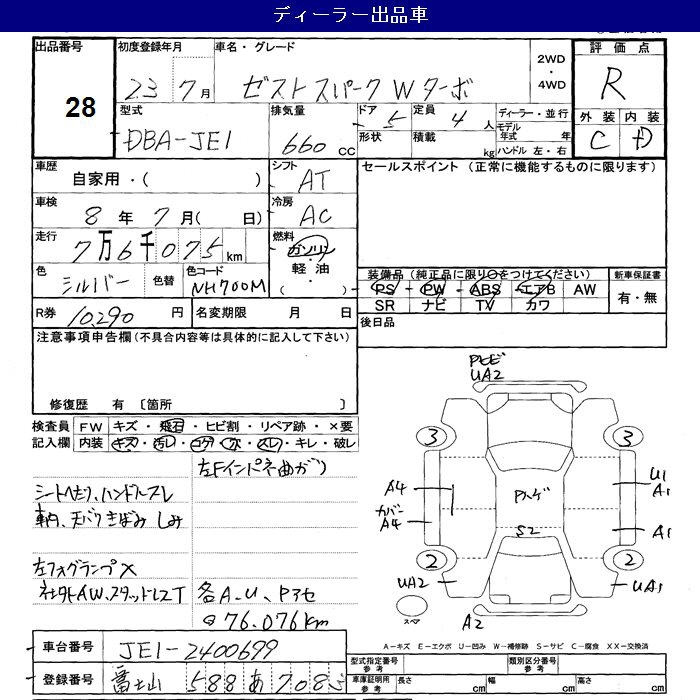 ディーラー出品車
出品番号 28
初度登録年月 23 7月
車名・グレード ゼストスパーク Wターボ
2WD・4WD
評価点 R
外装 C 内装 D
型式 DBA-JE1
排気量 660 cc
ドア 5 形状
定員 4人 積載 kg
ディーラー・並行
モデル年式 年
ハンドル 左・右
車歴 自家用・( )
シフト AT
セールスポイント (正常に機能するものに限ります)
車検 8年 7月( 日)
冷房 AC
走行 7万6千075km
燃料 ガソリン 軽・油 ( ・ )
色 シルバー 色替 色コード NH700M
装備品 (純正品に限り○をつけてください)
PS PW ABS エアB AW
SR ナビ TV カワ
新車保証書 有・無
R券 10,290 円
名変期限 月 日
後日品
注意事項申告欄 (不具合内容等は具体的に記入して下さい)
修復歴 有 〔箇所 〕
検査員記入欄
FW キズ・飛石・ヒビ割・リペア跡・×要
内装 キズ・汚レ・コゲ・穴・スレ・キレ・破レ
左Fインパネ曲がり
シートヘたり、ハンドルスレ
車内、天バリきばみ しみ
左フォグランプ×
社外AW、スタッドレスT
各A-U、Pアセ
76,076km
車台番号 JE1-2400699
登録番号 富士山 588 あ 708
PトビUA2
3 3
A4
カバーA4
Pハゲ
U1 A1
S2
A1
2 2
UA2
UA1
スペア
A2
A-キズ E-エクボ U-凹み W-補修跡 S-サビ C-腐食 XX-交換済
型式指定番号 参考
類別区分番号 参考
車庫証明用 参考 長さ cm 幅 cm 高さ cm